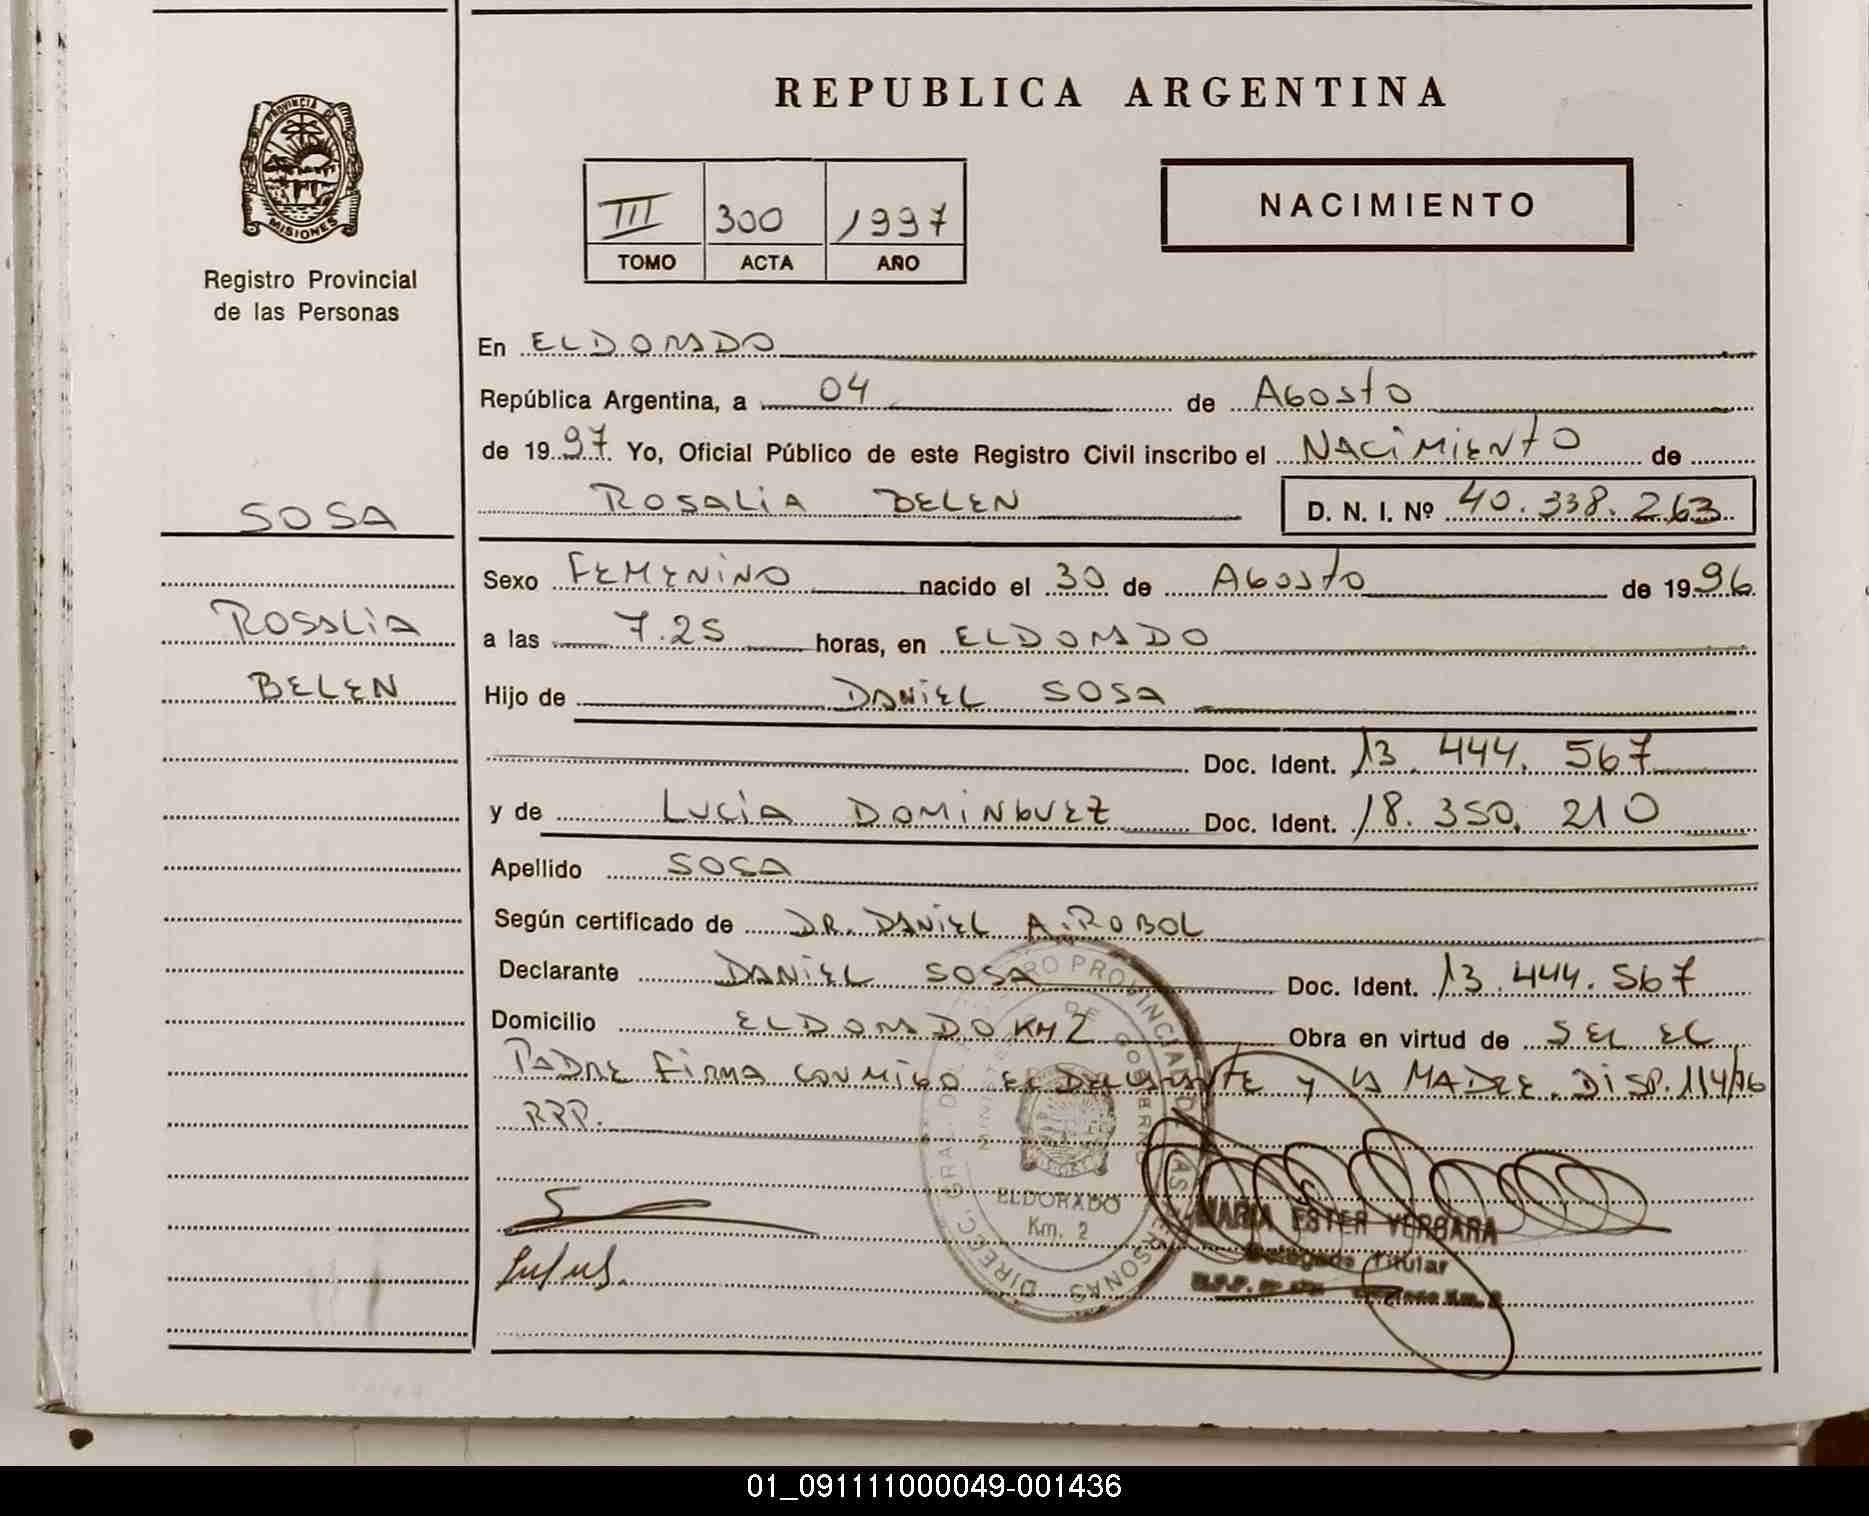 REPUBLICA ARGENTINA
PROVINCIA DE
MISIONES
Registro Provincial
de las Personas
III 300 1997
TOMO ACTA AÑO
NACIMIENTO
En ELDORADO
República Argentina, a 04 de Agosto
de 1997. Yo, Oficial Público de este Registro Civil inscribo el NACIMIENTO de
ROSALIA BELEN D. N. I. Nº 40.338.263
SOSA
ROSALIA
BELEN
Sexo FEMENINO nacido el 30 de Agosto de 1996
a las 7.25 horas, en ELDORADO
Hijo de DANIEL SOSA
Doc. Ident. 13.444.567
y de LUCIA DOMINGUEZ Doc. Ident. 18.350.210
Apellido SOSA
Según certificado de DR. DANIEL A. ROBOL
Declarante DANIEL SOSA Doc. Ident. 13.444.567
Domicilio ELDORADO KM 2 Obra en virtud de SER EL
PADRE FIRMA CONMIGO EL DECLARANTE y LA MADRE. DISP. 114/96
RPP.
ELDORADO
Km. 2
MARIA ESTER VERGARA
Delegada Titular
01_091111000049-001436